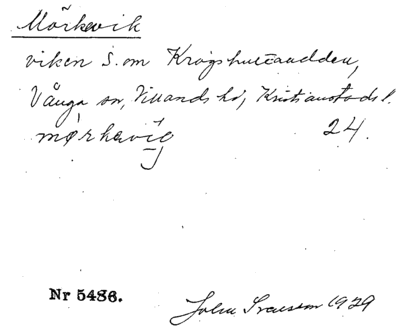 Mörkevik
viken S. om Krogshusudden,
Vånga sn, Villands hd, Kristianstads l.
mørkavig 24.
Nr 5486.
John Svensson 1929